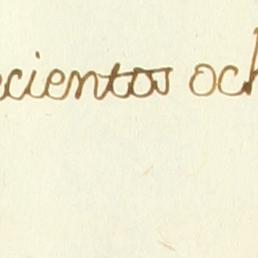 ecientos och